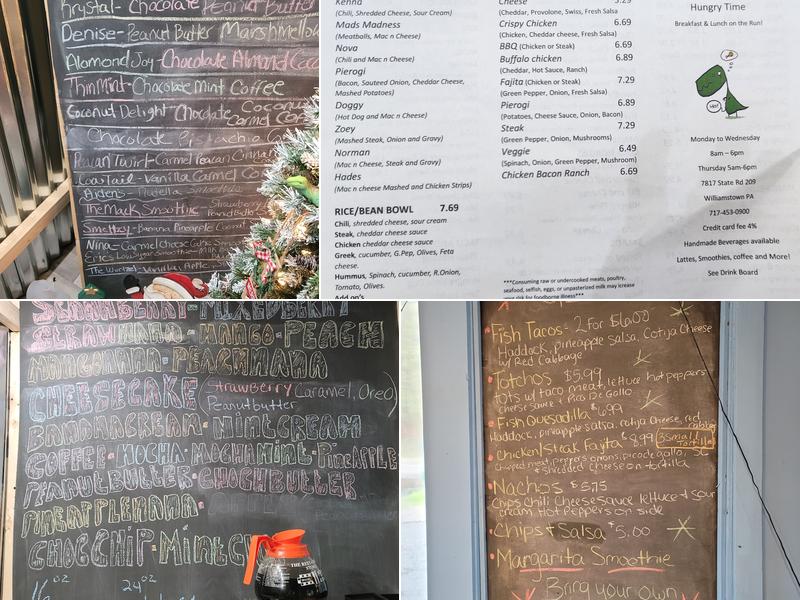 Krystal- Chocolate Peanut Butter
Denise- Peanut Butter Marshmellow
Alomond Joy- Chocolate Almond Coco
ThinMint- Chocolate Mint Coffee
Coconut Delight- Chocolate Coconut
Carmel Coffee
Chocolate Pistachio
Pecan Twirl- Carmel Pecan Cinnamon
CoarTail- Vanilla Carmel
Aidens- Nutella Smoothie
The Mack Smoothie Strawberry
Peanut Butter
Smethey- Banana Pineapple
Nina- Carmel Cheese Cake
Erics
Vanilla Apple
Kenna
(Chili, Shredded Cheese, Sour Cream)
Mads Madness
(Meatballs, Mac n Cheese)
Nova
(Chili and Mac n Cheese)
Pierogi
(Bacon, Sauteed Onion, Cheddar Cheese,
Mashed Potatoes)
Doggy
(Hot Dog and Mac n Cheese)
Zoey
(Mashed Steak, Onion and Gravy)
Norman
(Mac n Cheese, Steak and Gravy)
Hades
(Mac n cheese Mashed and Chicken Strips)
RICE/BEAN BOWL 7.69
Chili, shredded cheese, sour cream
Steak, cheddar cheese sauce
Chicken cheddar cheese sauce
Greek, cucumber, G.Pep, Olives, Feta
cheese.
Hummus, Spinach, cucumber, R.Onion,
Tomato, Olives.
Add on's
Cheese 5.29
(Cheddar, Provolone, Swiss, Fresh Salsa)
Crispy Chicken 6.69
(Chicken, Cheddar cheese, Fresh Salsa)
BBQ (Chicken or Steak) 6.69
Buffalo chicken 6.89
(Cheddar, Hot Sauce, Ranch)
Fajita (Chicken or Steak) 7.29
(Green Pepper, Onion, Fresh Salsa)
Pierogi 6.89
(Potatoes, Cheese Sauce, Onion, Bacon)
Steak 7.29
(Green Pepper, Onion, Mushrooms)
Veggie 6.49
(Spinach, Onion, Green Pepper, Mushroom)
Chicken Bacon Ranch 6.69
***Consuming raw or undercooked meats, poultry,
seafood, selfish, eggs, or unpasterized milk may icrease
your risk for foodborne illness***
Hungry Time
Breakfast & Lunch on the Run!
Monday to Wednesday
8am – 6pm
Thursday 5am-6pm
7817 State Rd 209
Williamstown PA
717-453-0900
Credit card fee 4%
Handmade Beverages available
Lattes, Smoothies, coffee and More!
See Drink Board
STRAWBERRY- MIXEDBERRY
STRAWNANA- MANGO- PEACH
MANGONANA- PEACHNANA
CHEESECAKE (Strawberry Caramel, Oreo)
Peanutbutter
BANANACREAM- MINTCREAM
COFFEE- MOCHA- MOCHAMINT- PINEAPPLE
PEANUTBUTTER- CHOCNBUTTER
PINEAPPLENANA-
CHOCCHIP- MINTCH
16oz 24oz
Fish Tacos- 2 For $6.00
Haddock, pineapple salsa, Cotija Cheese
w/ Red Cabbage
Totchos $5.99
tots w/ taco meat, lettuce hot peppers
cheese sauce + Pico De Gallo
Fish Quesadilla $6.99
Haddock, pineapple salsa, cotija cheese, red cabbage
Chicken/steak Fajita $9.99 3 Small Tortilla
Chopped meat, peppers onions, pico de gallo, SC
+ Shredded cheese on tortilla
Nachos $5.75
Chips Chili Cheese sauce lettuce + sour
cream. Hot Peppers on side
Chips + Salsa $5.00
Margarita Smoothie
Bring your own